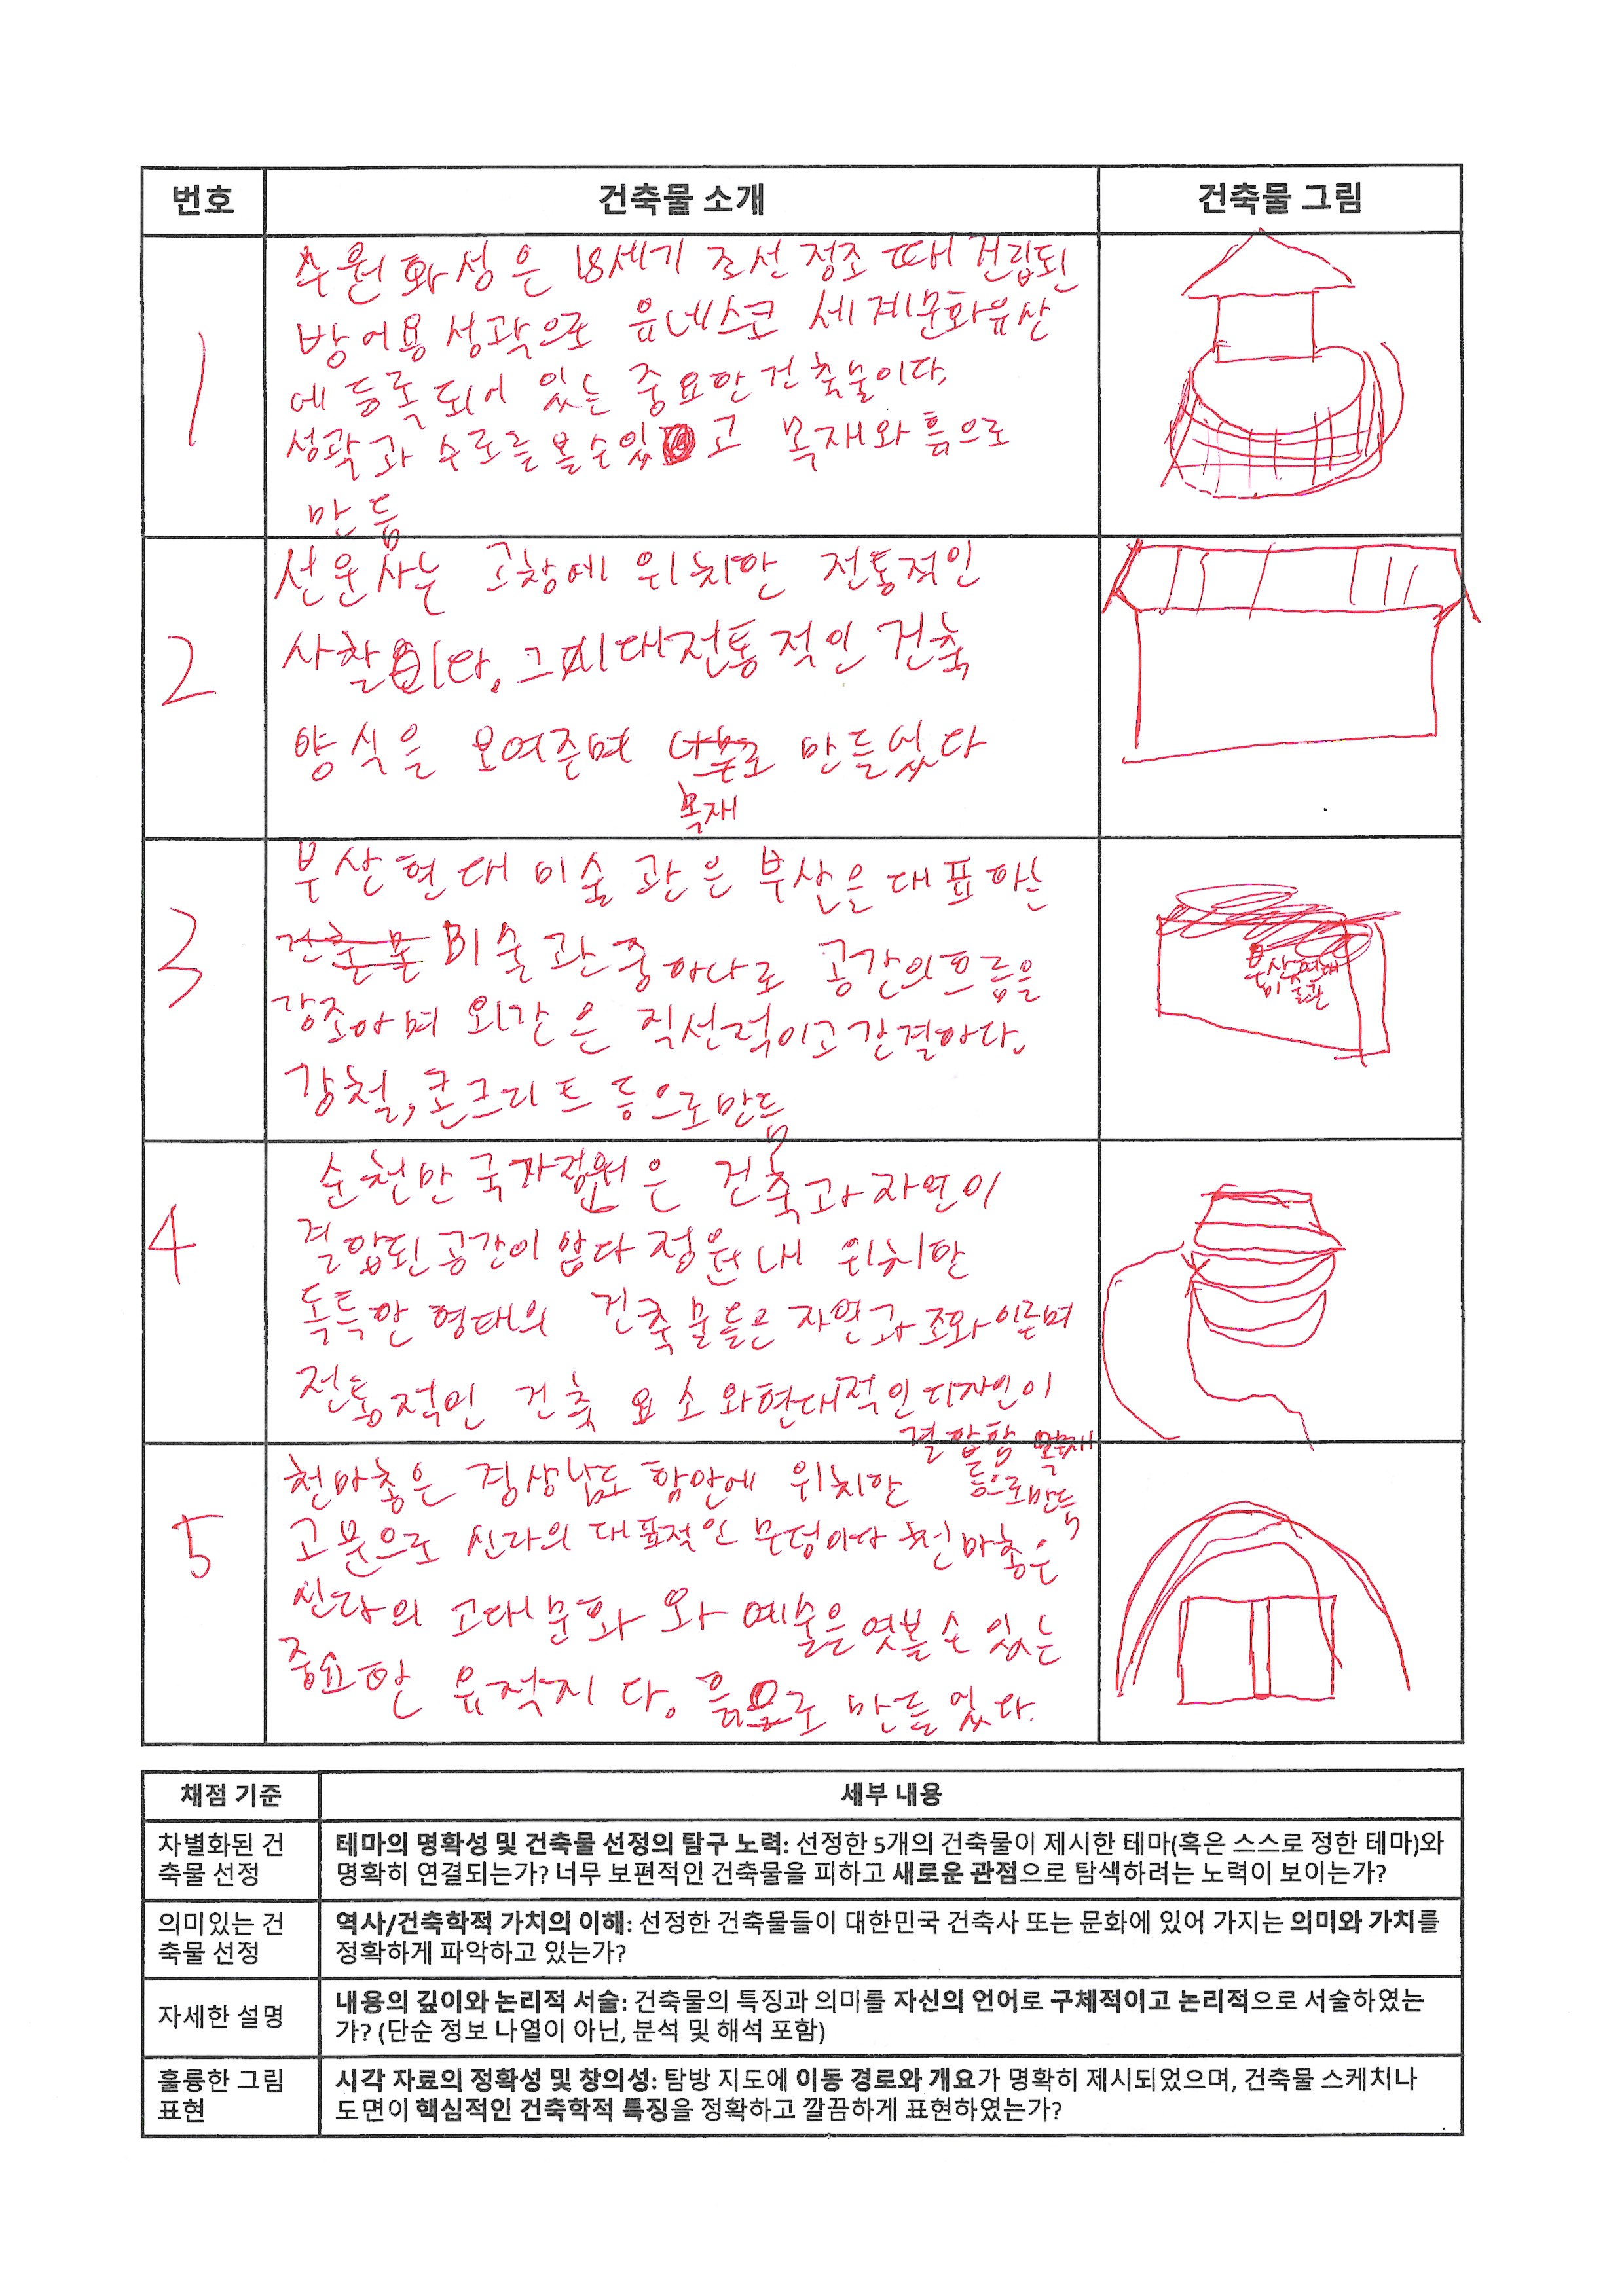 번호 건축물 소개 건축물 그림
1
수원화성은 18세기 조선 정조 때 건립된
방어용 성곽으로 유네스코 세계문화유산
에 등록되어 있는 중요한 건축물이다.
성곽과 수로를 볼 수 있고 목재와 흙으로
만듬
2
선운사는 고창에 위치한 전통적인
사찰이다. 그시대전통적인 건축
양식을 보여주며 나무로 만들었다
목재
3
부산현대미술관은 부산은대표하는
건축물 미술관중하나로 공간의흐름을
강조하며 외간은 직선적이고간결하다.
강철, 콘크리트 등으로만듬
부산현대
미술관
4
순천만국가정원은 건축과자연이
결합된공간이 있다 정원내 위치한
독특한 형태의 건축물들은 자연과 조화 이루며
전통적인 건축 요소와현대적인디자인이
결합함 목재
등으로만듬
5
천마총은 경상남도 함안에 위치한
고분으로 신라의 대표적인 무덤이다 천마총은
신라의 고대문화와 예술을엿볼수 있는
중요한 유적지다. 흙으로 만들었다.
채점 기준 세부 내용
차별화된 건
축물 선정
테마의 명확성 및 건축물 선정의 탐구 노력: 선정한 5개의 건축물이 제시한 테마(혹은 스스로 정한 테마)와
명확히 연결되는가? 너무 보편적인 건축물을 피하고 새로운 관점으로 탐색하려는 노력이 보이는가?
의미있는 건
축물 선정
역사/건축학적 가치의 이해: 선정한 건축물들이 대한민국 건축사 또는 문화에 있어 가지는 의미와 가치를
정확하게 파악하고 있는가?
자세한 설명
내용의 깊이와 논리적 서술: 건축물의 특징과 의미를 자신의 언어로 구체적이고 논리적으로 서술하였는
가? (단순 정보 나열이 아닌, 분석 및 해석 포함)
훌륭한 그림
표현
시각 자료의 정확성 및 창의성: 탐방 지도에 이동 경로와 개요가 명확히 제시되었으며, 건축물 스케치나
도면이 핵심적인 건축학적 특징을 정확하고 깔끔하게 표현하였는가?